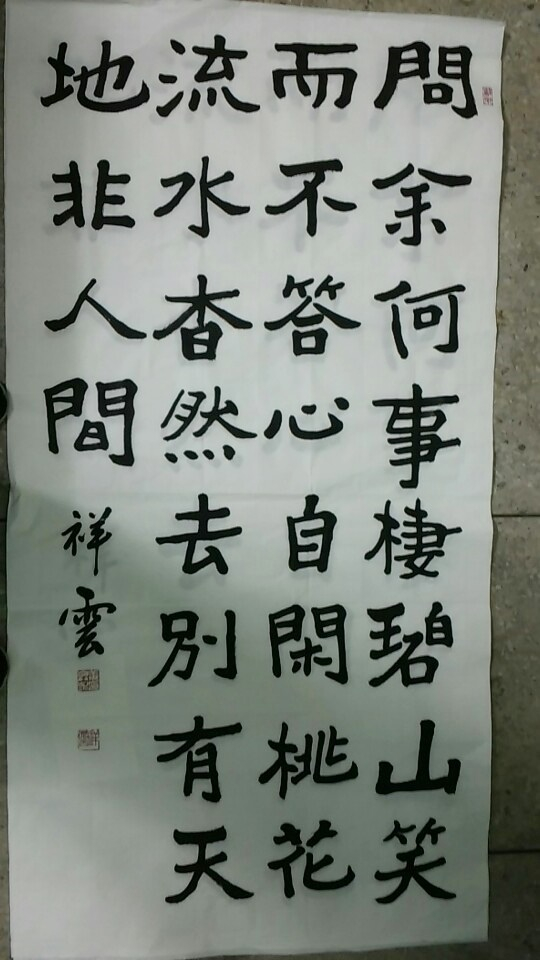 問余何事棲碧山笑
而不答心自閑桃花
流水杳然去別有天
地非人間
祥雲